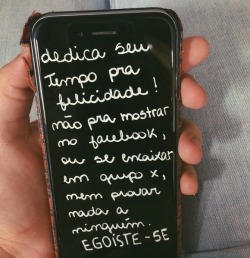 dedica seu
Tempo pra
felicidade!
não pra mostrar
no facebook,
ou se encaixar
em grupo x,
nem provar
nada a
ninguém.
EGOÍSTE-SE